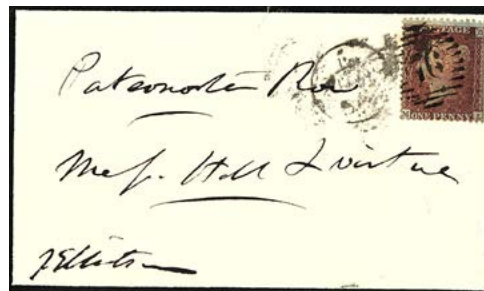 POSTAGE
ONE PENNY
Paternoster Row
Mess. Hall & Virtue